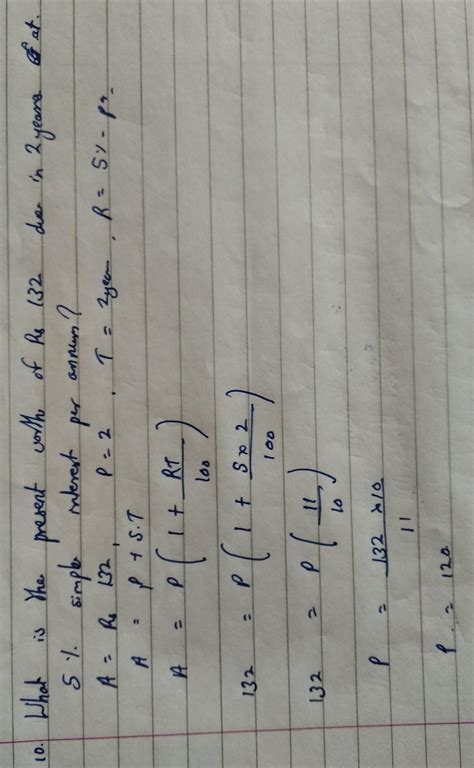 10. What is the present worth of Rs 132 due in 2 years at
5% simple interest per annum?
A = Rs 132, P = 2, T = 2 year, R = 5% P.a.
A = P + S.I
A = P ( 1 + RT/100 )
132 = P ( 1 + 5×2/100 )
132 = P ( 11/10 )
P = 132 × 10 / 11
P = 120